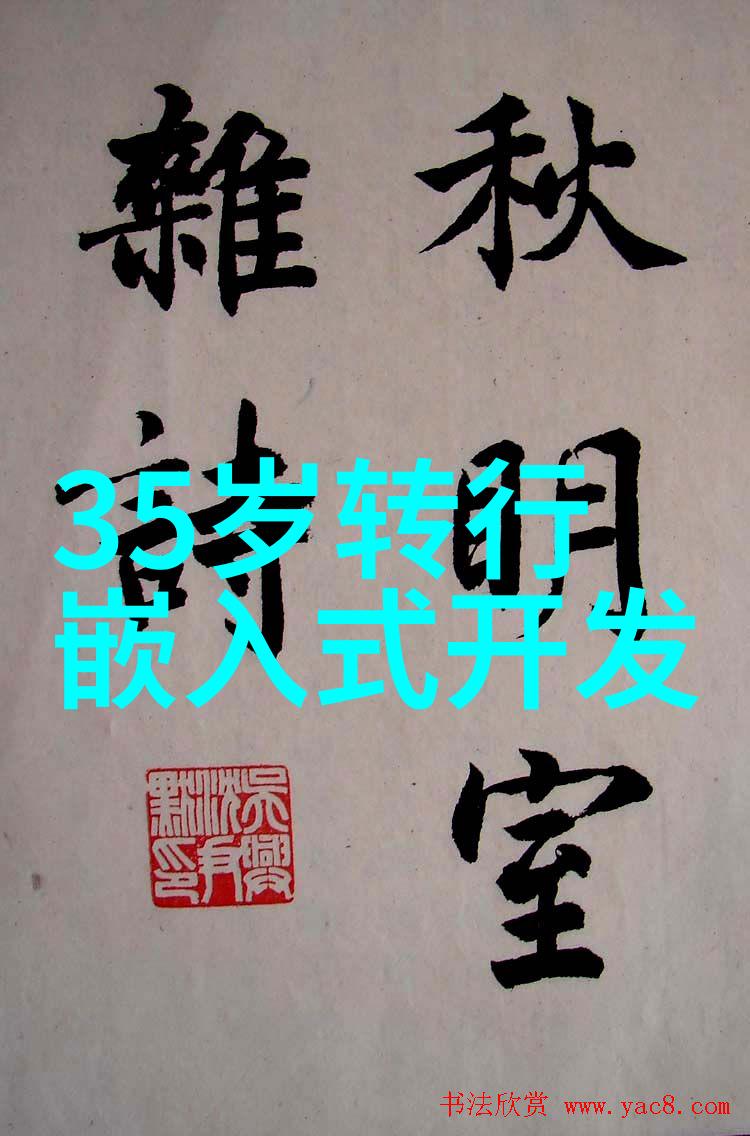 秋明室
雜詩
35岁转行
嵌入式开发
吳興
沈尹
默印
书法欣赏 www.yac8.com